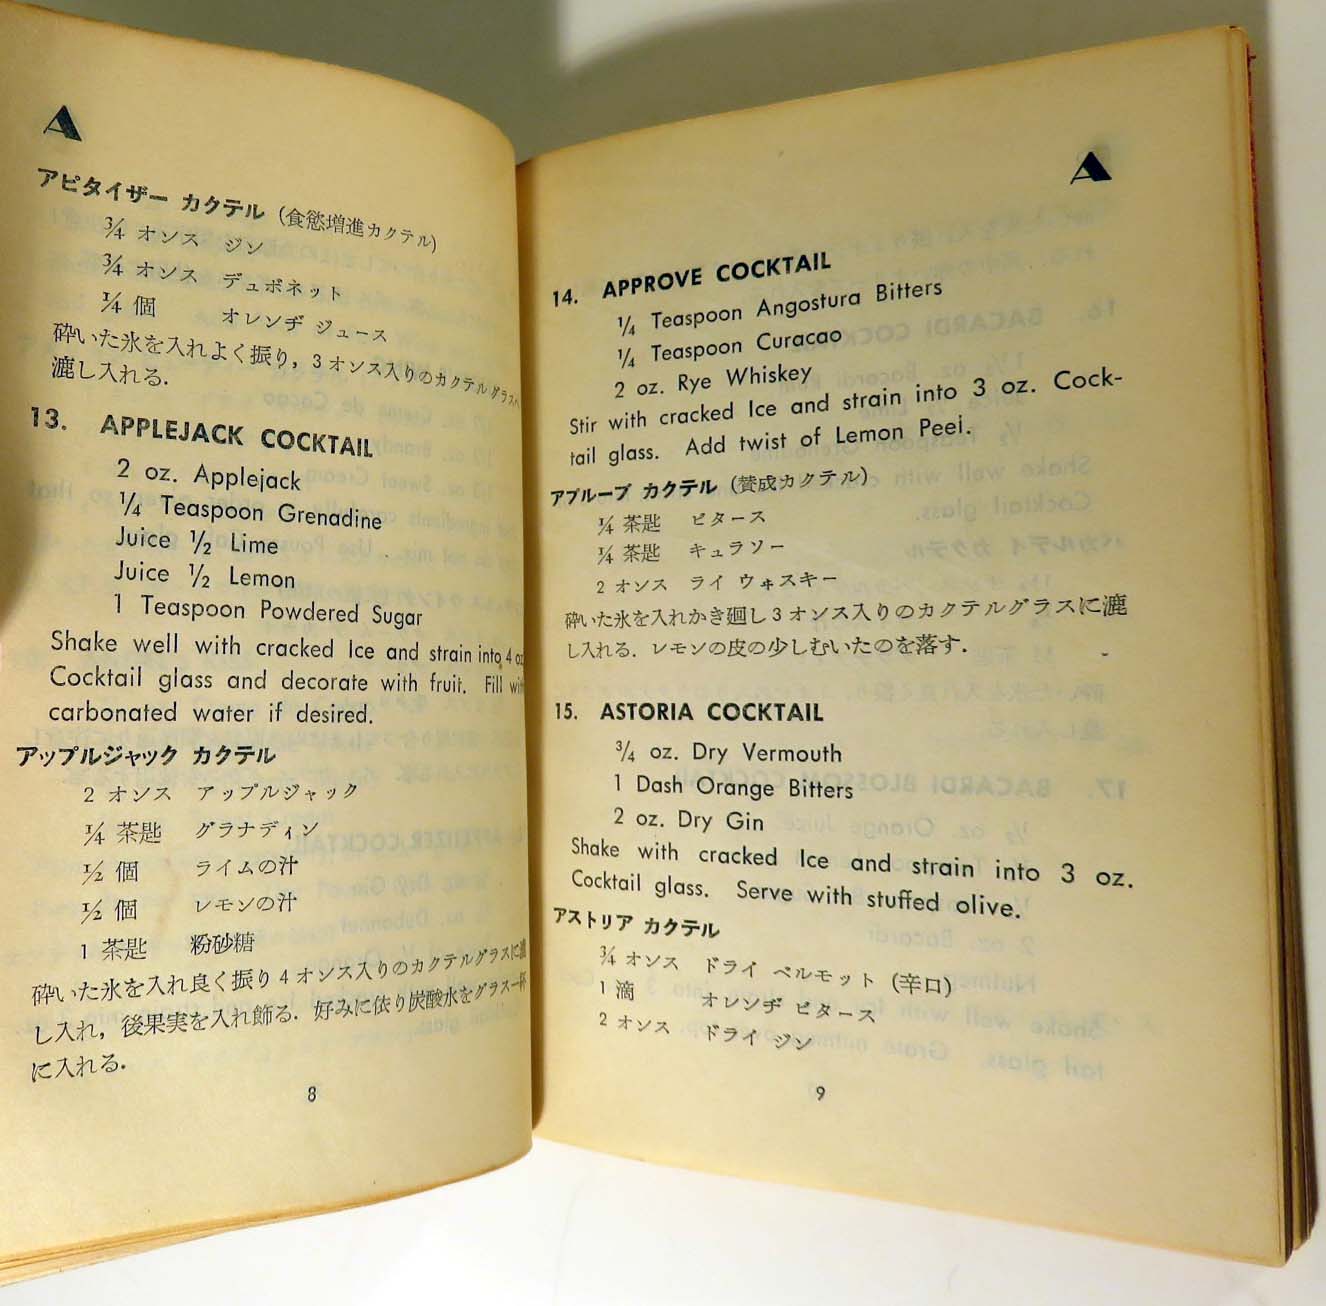 A
アピタイザー カクテル (食慾増進カクテル)
¾ オンス ジン
¾ オンス デュボネット
¼ 個 オレンヂ ジュース
砕いた氷を入れよく振り, 3 オンス入りのカクテルグラスへ
漉し入れる.
13. APPLEJACK COCKTAIL
2 oz. Applejack
¼ Teaspoon Grenadine
Juice ½ Lime
Juice ½ Lemon
1 Teaspoon Powdered Sugar
Shake well with cracked Ice and strain into 4 oz
Cocktail glass and decorate with fruit. Fill with
carbonated water if desired.
アップルジャック カクテル
2 オンス アップルジャック
¼ 茶匙 グラナディン
½ 個 ライムの汁
½ 個 レモンの汁
1 茶匙 粉砂糖
砕いた氷を入れ良く振り 4 オンス入りのカクテルグラスに漉
し入れ, 後果実を入れ飾る. 好みに依り炭酸水をグラス一杯
に入れる.
8
A
14. APPROVE COCKTAIL
¼ Teaspoon Angostura Bitters
¼ Teaspoon Curacao
2 oz. Rye Whiskey
Stir with cracked Ice and strain into 3 oz. Cock-
tail glass. Add twist of Lemon Peel.
アプルーブ カクテル (賛成カクテル)
¼ 茶匙 ビタース
¼ 茶匙 キュラソー
2 オンス ライ ウヰスキー
砕いた氷を入れかき廻し 3 オンス入りのカクテルグラスに漉
し入れる. レモンの皮の少しむいたのを落す.
15. ASTORIA COCKTAIL
¾ oz. Dry Vermouth
1 Dash Orange Bitters
2 oz. Dry Gin
Shake with cracked Ice and strain into 3 oz.
Cocktail glass. Serve with stuffed olive.
アストリア カクテル
¾ オンス ドライ ベルモット (辛口)
1 滴 オレンヂ ビタース
2 オンス ドライ ジン
9